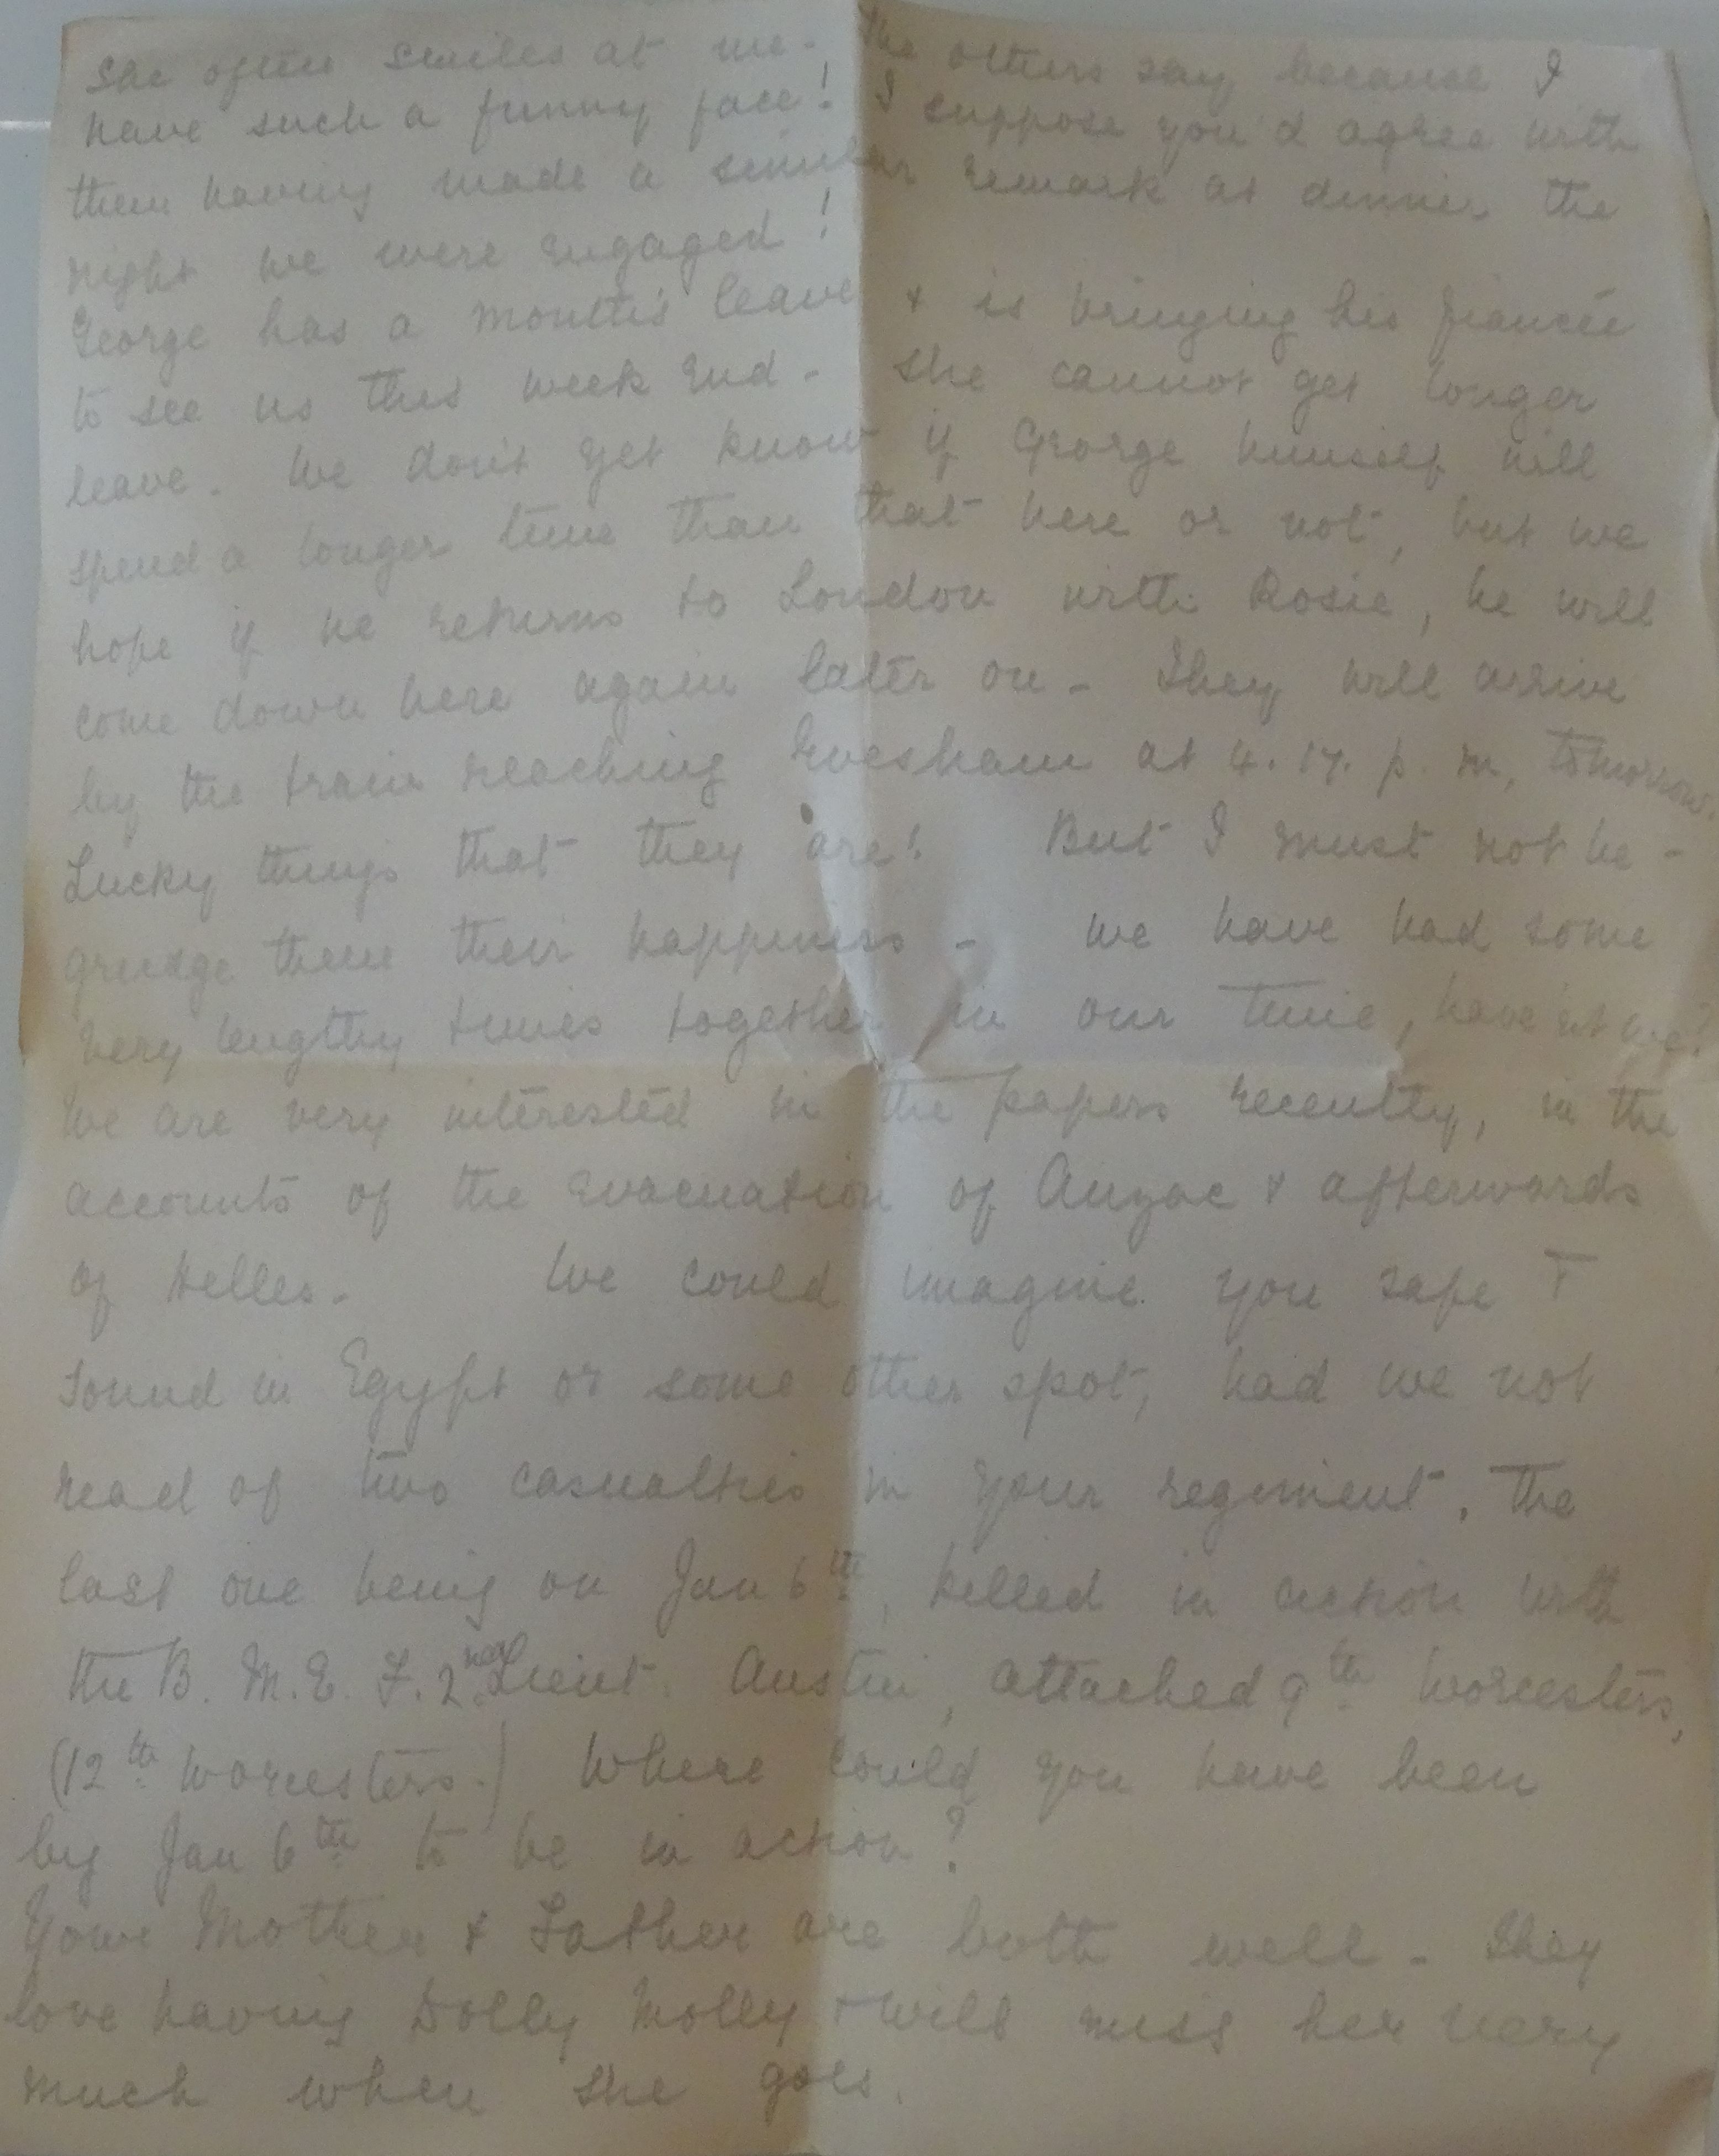 She often smiles at me - the others say because I
have such a funny face! I suppose you'd agree with
them having made a similar remark at dinner the
night we were engaged!
George has a month's leave & is bringing his fiancée
to see us this week end - She cannot get longer
leave. We don't yet know if George himself will
spend a longer time than that here or not, but we
hope if he returns to London with Rosie, he will
come down here again later on - They will arrive
by the train reaching Evesham at 4.17. p.m, tomorrow.
Lucky things that they are! But I must not be-
grudge them their happiness - We have had some
very lengthy times together in our time, have'nt we?
We are very interested in the papers recently, in the
accounts of the evacuation of Anzac & afterwards
of Helles. We could imagine you safe &
sound in Egypt or some other spot, had we not
read of two casualties in your regiment. The
last one being on Jan 6th, killed in action with
the B. M. E. F. 2nd Lieut. Austin, attached 9th Worcesters,
(12th Worcesters.) Where could you have been
by Jan 6th to be in action?
Your Mother & Father are both well - They
love having Dolly Molly & will miss her very
much when she goes.